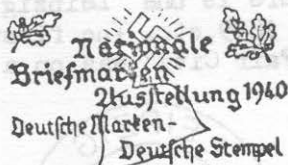 Nationale
Briefmarken
Ausstellung 1940
Deutsche Marken-
Deutsche Stempel